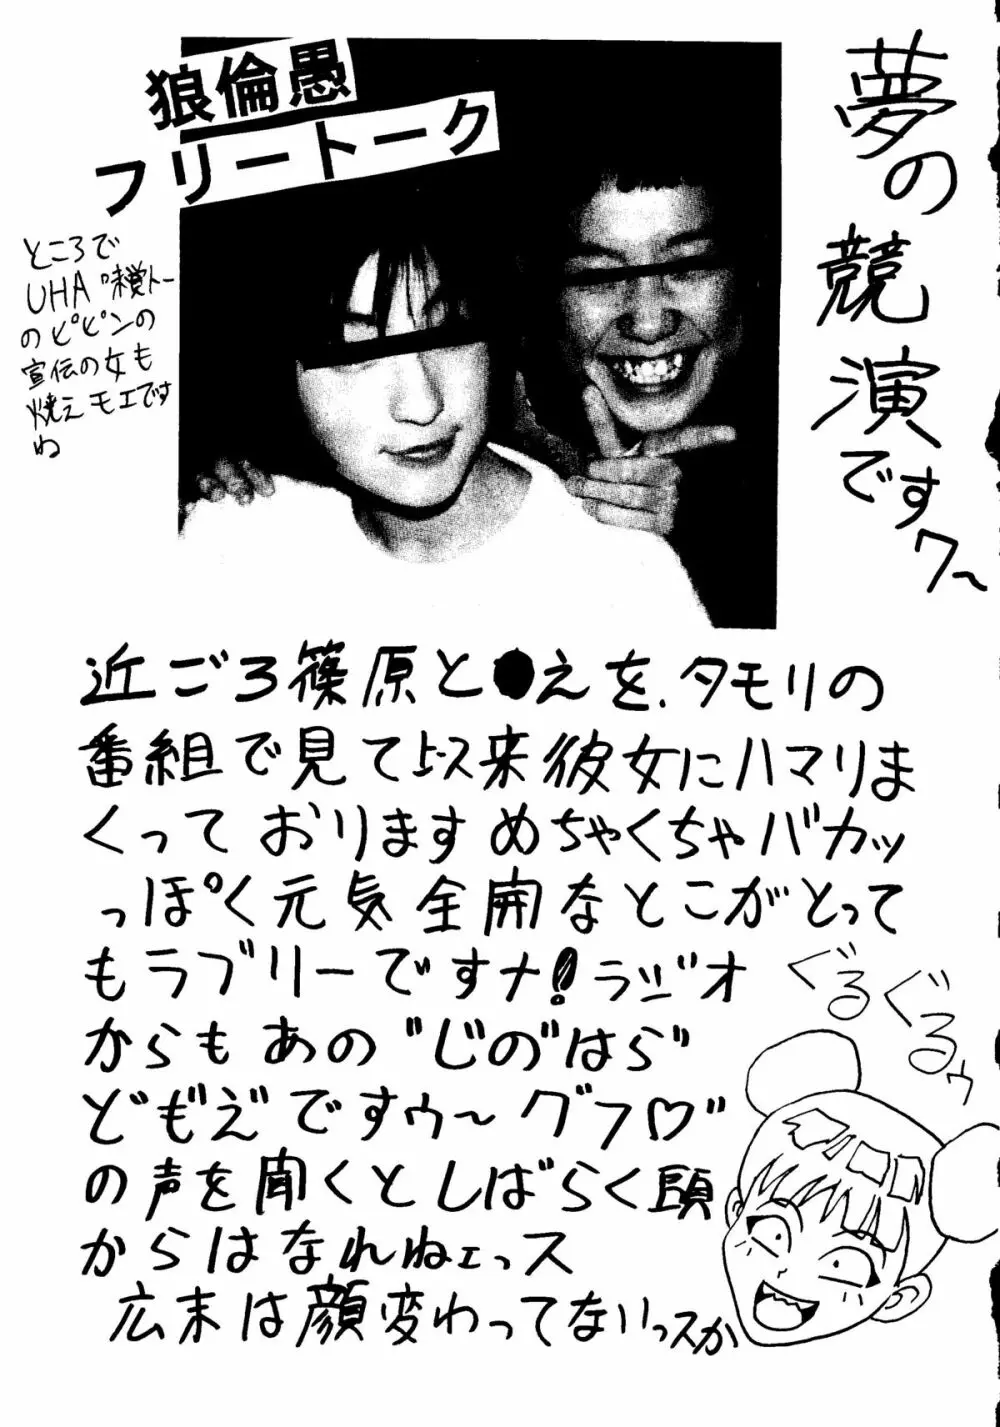 狼倫愚
フリートーク
夢の競演ですワ〜
ところで
UHA味覚トー
のピピンの
宣伝の女も
燃えモエです
ね
近ごろ篠原と●えを、タモリの
番組で見て以来彼女にハマりま
くっております めちゃくちゃバカッ
っぽく元気全開なとこがとって
もラブリーですナ!ラジオ
からもあの"じのはら"
ども゛え゛ですゥ〜グフ♡"
の声を聞くとしばらく頭
からはなれねェっス
広末は顔変わってないっスか
ぐるぐるゥ